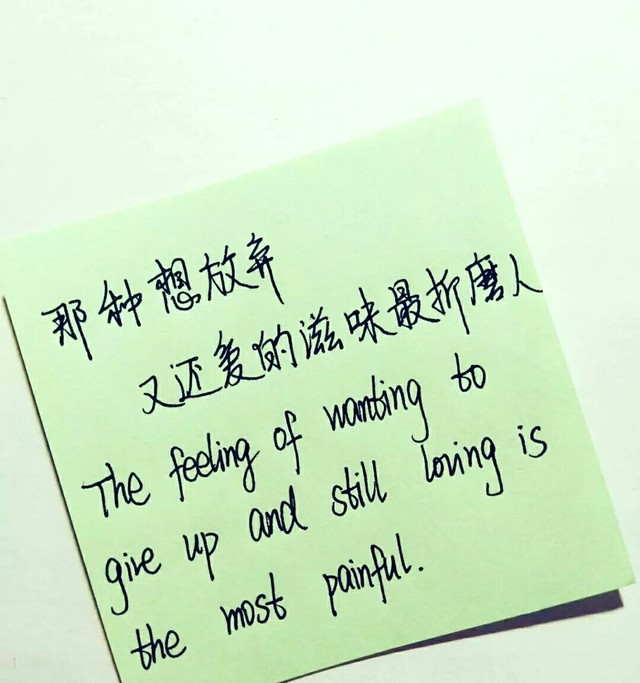 那种想放弃
又还爱的滋味最折磨人
The feeling of wanting to
give up and still loving is
the most painful.